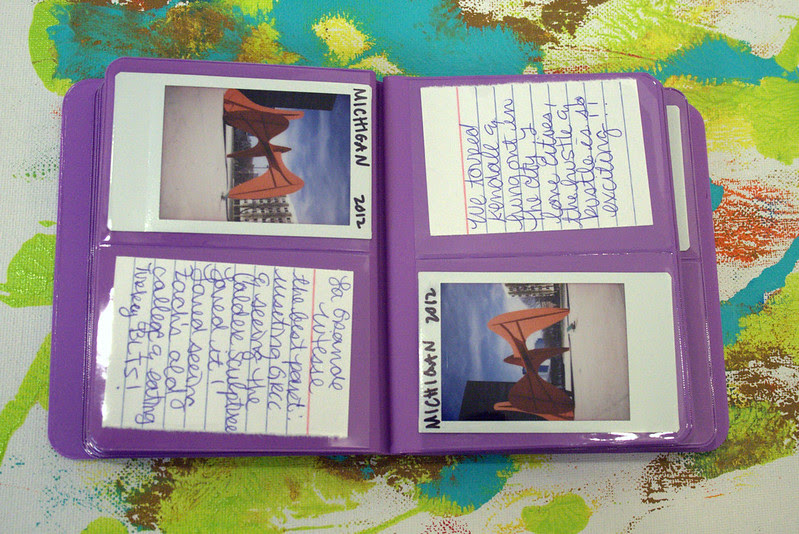 MICHIGAN 2012
La Grande
Vitesse
the best part:
meeting
& seeing the
Calder sculpture
loved it!
loved seeing
Zach's old
college & eating
turkey BLTs!
We toured
Kendall &
hung out in
the city. I
love cities!
the hustle &
bustle is so
exciting!!
MICHIGAN 2012